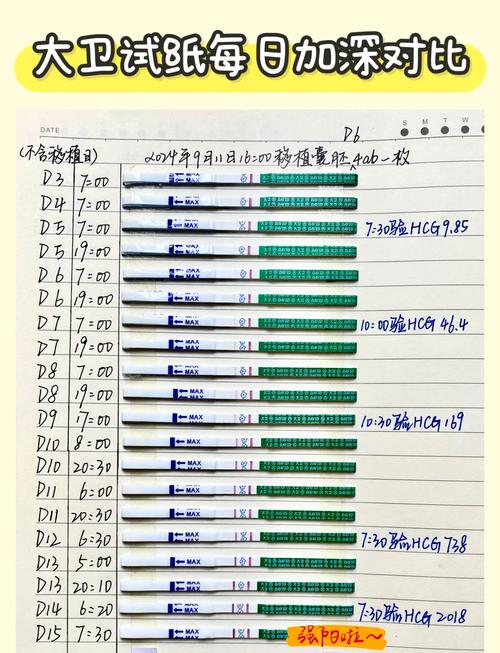 大卫试纸每日加深对比
DATE
S M T W
D6
(不含移植日) 2024年9月11日16:00移植囊胚,4ab一枚
D3 7:00 MAX
D4 7:00 MAX
D5 7:00 MAX 7:30验HCG 9.85
D5 19:00 MAX
D6 7:00 MAX
D6 19:00 MAX
D7 7:00 MAX 10:00验HCG 46.4
D7 19:00 MAX
D8 7:00 MAX
D8 19:00 MAX
D9 17:00 MAX 10:30验HCG 169
D10 8:00 MAX
D10 20:30 MAX
D11 6:00 MAX
D11 20:30 MAX
D12 6:30 MAX 7:30验HCG 738
D13 5:00 MAX
D13 20:10 MAX
D14 6:20 MAX 7:30验HCG 2018
D15 7:30 MAX 强阳啦~